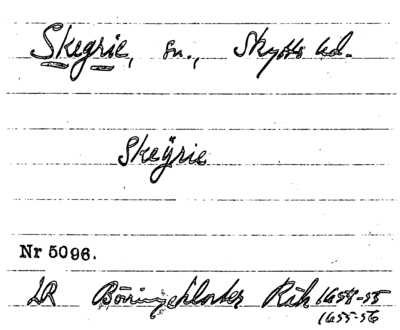 Skegrie, sn., Skytts hd.
Skeÿrie
Nr 5096.
LR Böringe kloster Räk 1658-55
1655-56